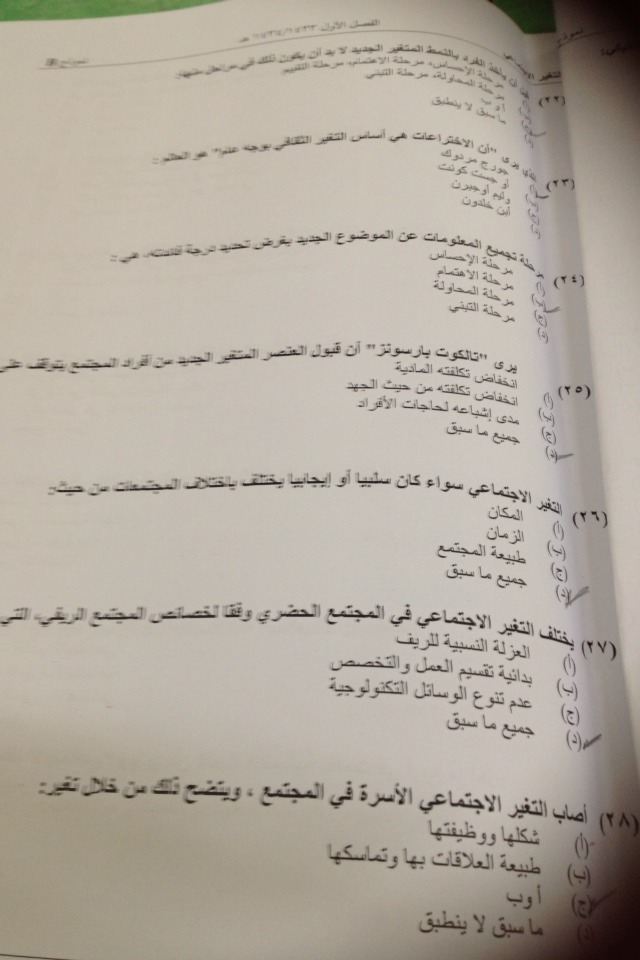 الفصل الأول ١٤٣٣/١٤٣٤ هـ
التغير الاجتماعي
(٢٢) قبل أن يأخذ الفرد بالنمط المتغير الجديد لا بد أن يكون ذلك في مراحل منها:
مرحلة الإحساس، مرحلة الاهتمام، مرحلة التقييم
مرحلة المحاولة، مرحلة التبني
أ و ب
ما سبق لا ينطبق
(٢٣) الذي يرى "أن الاختراعات هي أساس التغير الثقافي بوجه عام" هو العالم:
جورج مردوك
أوجست كونت
وليم أوجبرن
ابن خلدون
(٢٤) مرحلة تجميع المعلومات عن الموضوع الجديد بغرض تحديد درجة فائدته، هي:
مرحلة الإحساس
مرحلة الاهتمام
مرحلة المحاولة
مرحلة التبني
(٢٥) يرى "تالكوت بارسونز" أن قبول العنصر المتغير الجديد من أفراد المجتمع يتوقف على
انخفاض تكلفته المادية
انخفاض تكلفته من حيث الجهد
مدى إشباعه لحاجات الأفراد
(د) جميع ما سبق
(٢٦) التغير الاجتماعي سواء كان سلبيا أو إيجابيا يختلف باختلاف المجتمعات من حيث:
المكان
الزمان
(ج) طبيعة المجتمع
(د) جميع ما سبق
(٢٧) يختلف التغير الاجتماعي في المجتمع الحضري وفقا لخصائص المجتمع الريفي، التي
(أ) العزلة النسبية للريف
(ب) بدائية تقسيم العمل والتخصص
(ج) عدم تنوع الوسائل التكنولوجية
(د) جميع ما سبق
(٢٨) أصاب التغير الاجتماعي الأسرة في المجتمع ، ويتضح ذلك من خلال تغير:
(أ) شكلها ووظيفتها
(ب) طبيعة العلاقات بها وتماسكها
(ج) أ وب
(د) ما سبق لا ينطبق